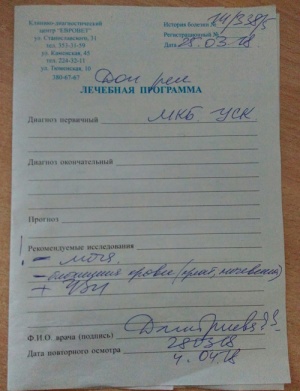 Клинико-диагностический
центр "ЕВРОВЕТ"
ул. Станиславского, 31
тел. 353-31-59
ул. Киевская, 45
тел. 224-32-11
ул. Тюменская, 10
280-67-67
История болезни № 14/3385
Регистрационный №
Дата 28.03.18
Доп рек
ЛЕЧЕБНАЯ ПРОГРАММА
Диагноз первичный МКБ. УСК
Диагноз окончательный
Прогноз
Рекомендуемые исследования
- моча.
- биохимия крови (креат, мочевина)
+ УЗИ
Ф.И.О. врача (подпись) Дмитриева
28.03.18
Дата повторного осмотра 4.04.18